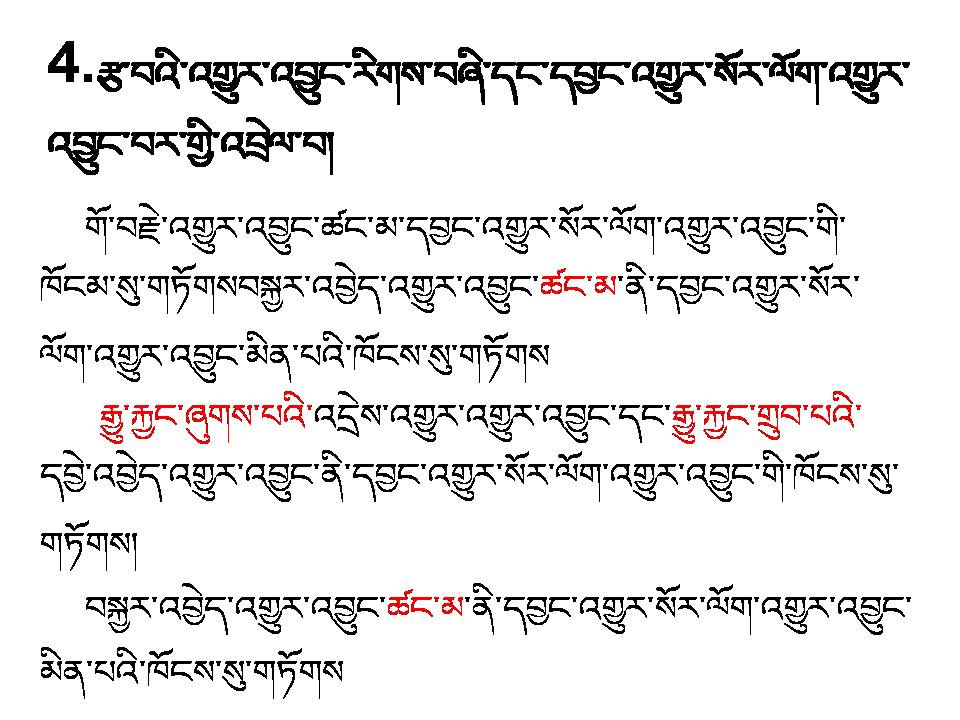 4.རྩ་བའི་འགྱུར་འབྱུང་རིགས་བཞི་དང་དབྱང་འགྱུར་སོར་ལོག་འགྱུར་
འབྱུང་བར་གྱི་འབྲེལ་བ།
གོ་བརྗེ་འགྱུར་འབྱུང་ཚང་མ་དབྱང་འགྱུར་སོར་ལོག་འགྱུར་འབྱུང་གི་
ཁོངམ་སུ་གཏོགསབསྐྱར་འབྱེད་འགྱུར་འབྱུང་ཚང་མ་ནི་དབྱང་འགྱུར་སོར་
ལོག་འགྱུར་འབྱུང་མིན་པའི་ཁོངས་སུ་གཏོགས
རྒྱུ་རྐྱང་ཞུགས་པའི་འདྲེས་འགྱུར་འགྱུར་འབྱུང་དང་རྒྱུ་རྐྱང་གྲུབ་པའི་
དབྱེ་འབྱེད་འགྱུར་འབྱུང་ནི་དབྱང་འགྱུར་སོར་ལོག་འགྱུར་འབྱུང་གི་ཁོངས་སུ་
གཏོགས།
བསྐྱར་འབྱེད་འགྱུར་འབྱུང་ཚང་མ་ནི་དབྱང་འགྱུར་སོར་ལོག་འགྱུར་འབྱུང་
མིན་པའི་ཁོངས་སུ་གཏོགས